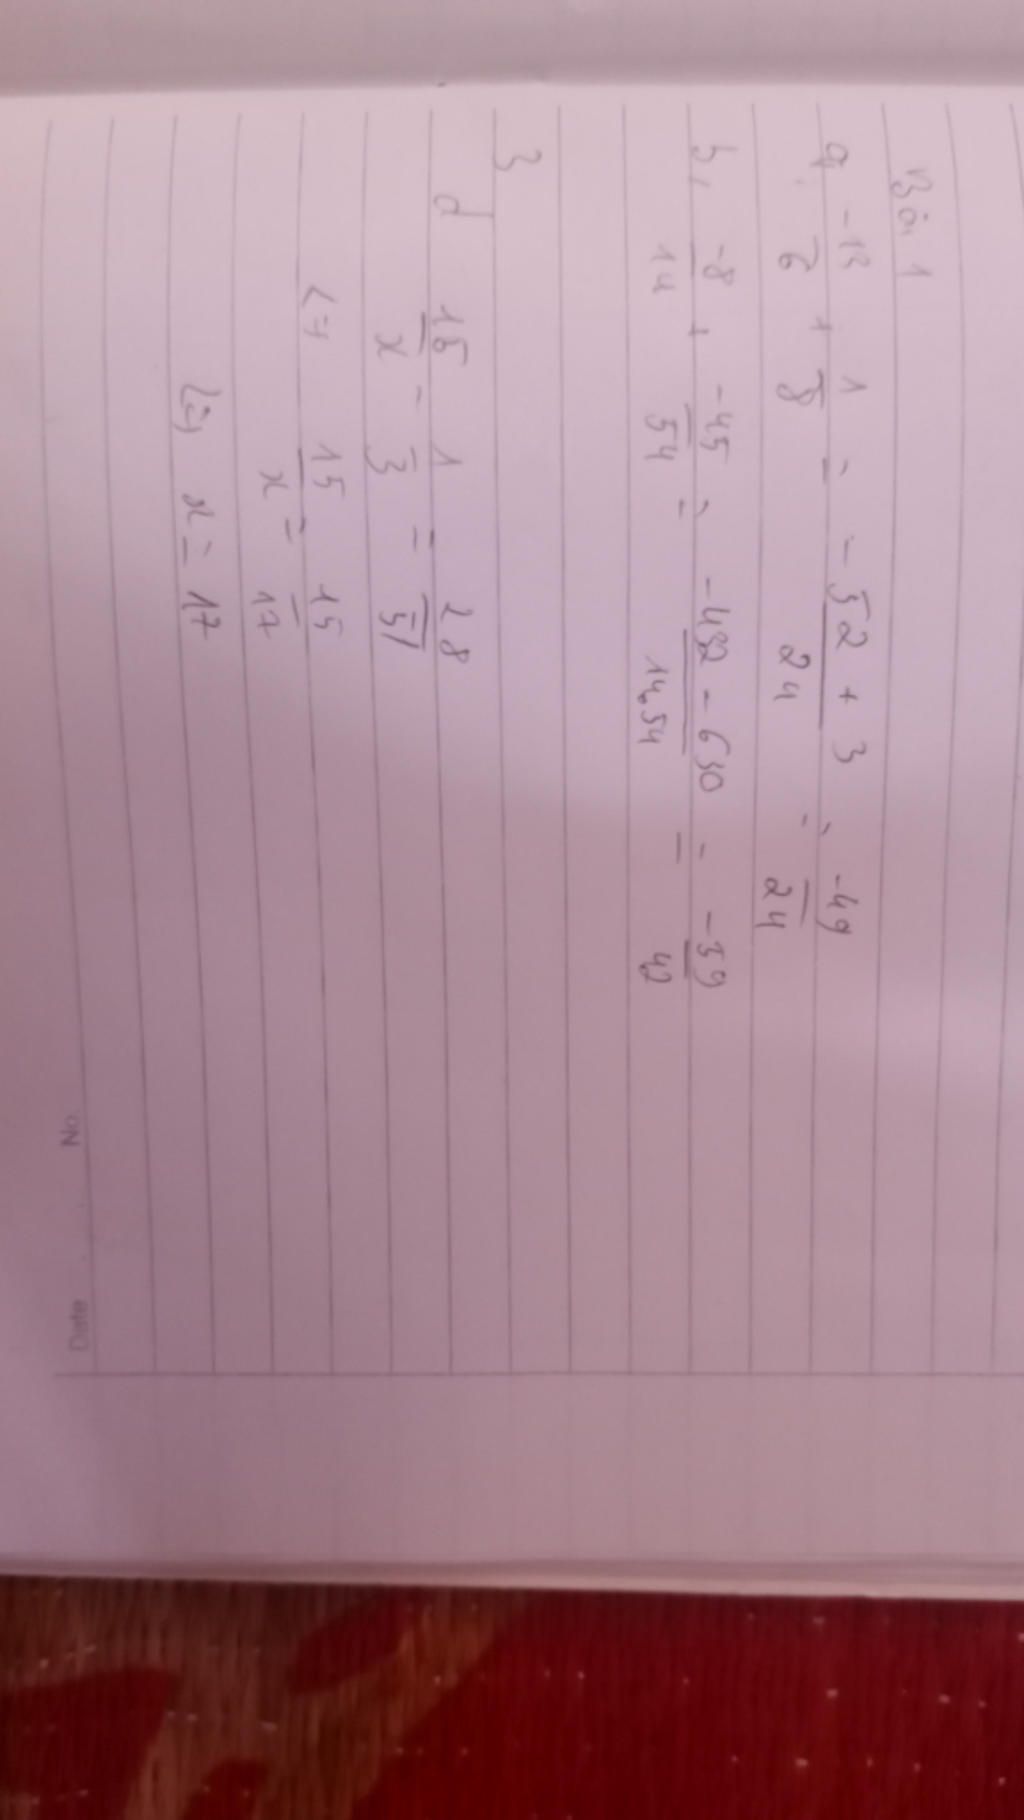 Bài 1
a, -13/6 + 1/8 = -52 + 3/24 = -49/24
b, -8/14 + -45/54 = -432 - 630/14.54 = -59/42
3
d 15/x - 1/3 = 28/51
<=> 15/x = 15/17
<=> x = 17
No.
Date